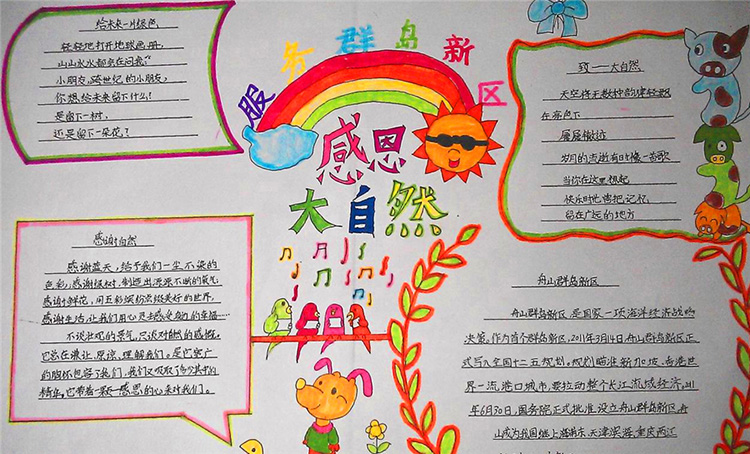 给未来一片绿色
轻轻地打开地球画册,
山山水水都会在问我:
小朋友,跨世纪的小朋友,
你想给未来留下什么!
是留下一树,
还是留下一朵花?
服务群岛新区
感恩
大自然
致——大自然
天空将无数种的
在奔向下
屡屡
岁月的流逝有时像一首歌
当你在这里想起
快乐时光请把记忆
留在广远的地方
感谢自然
感谢蓝天,给予我们一尘不染的
色彩,感谢绿树,制造出源源不断的氧气
感谢鲜花,用五彩缤纷点缀美好的世界,
感谢生活,让我们用心灵去感受真的幸福……
不谈壮观的景气,只谈对自然的感慨。
它总在谦让、原谅、理解我们。是它宽广
的胸怀包容了我们,我们又吸取了多少其中的
精华,它带着一颗感恩的心来对我们。
舟山群岛新区
舟山群岛新区,是国家一项海洋经济战略
决策。作为首个群岛新区,2011年3月14日,舟山群岛新区正
式写入全国十二五规划。规划瞄准新加坡、香港世
界一流港口城市,要拉动整个长江流域经济。2011
年6月30日,国务院正式批准设立舟山群岛新区,舟
山成为我国继上海浦东、天津滨海、重庆两江